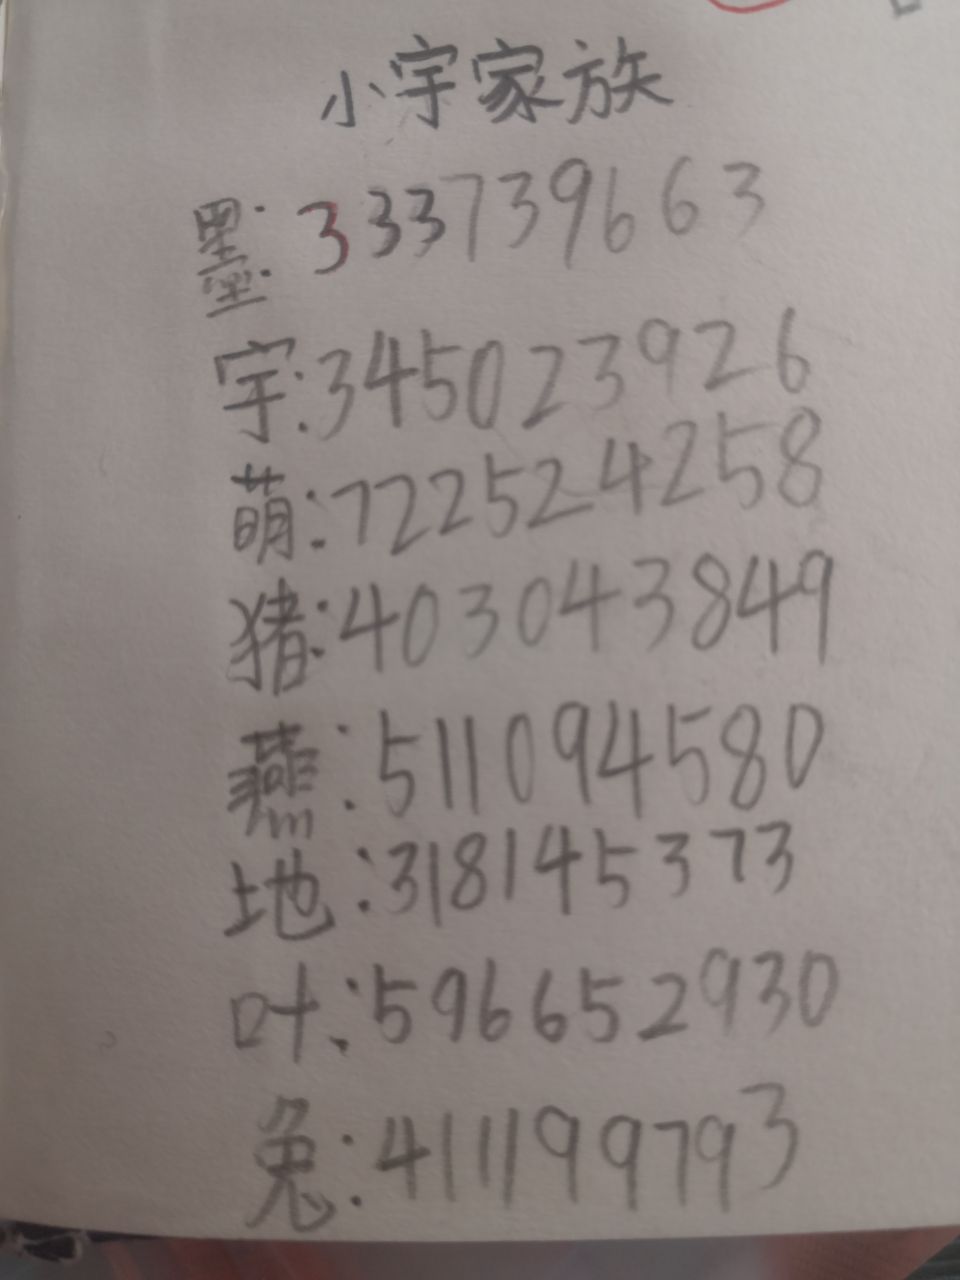 小宇家族
墨:333739663
宇:345023926
萌:722524258
猪:403043849
燕:511094580
地:318145373
叶:596652930
兔:411199793